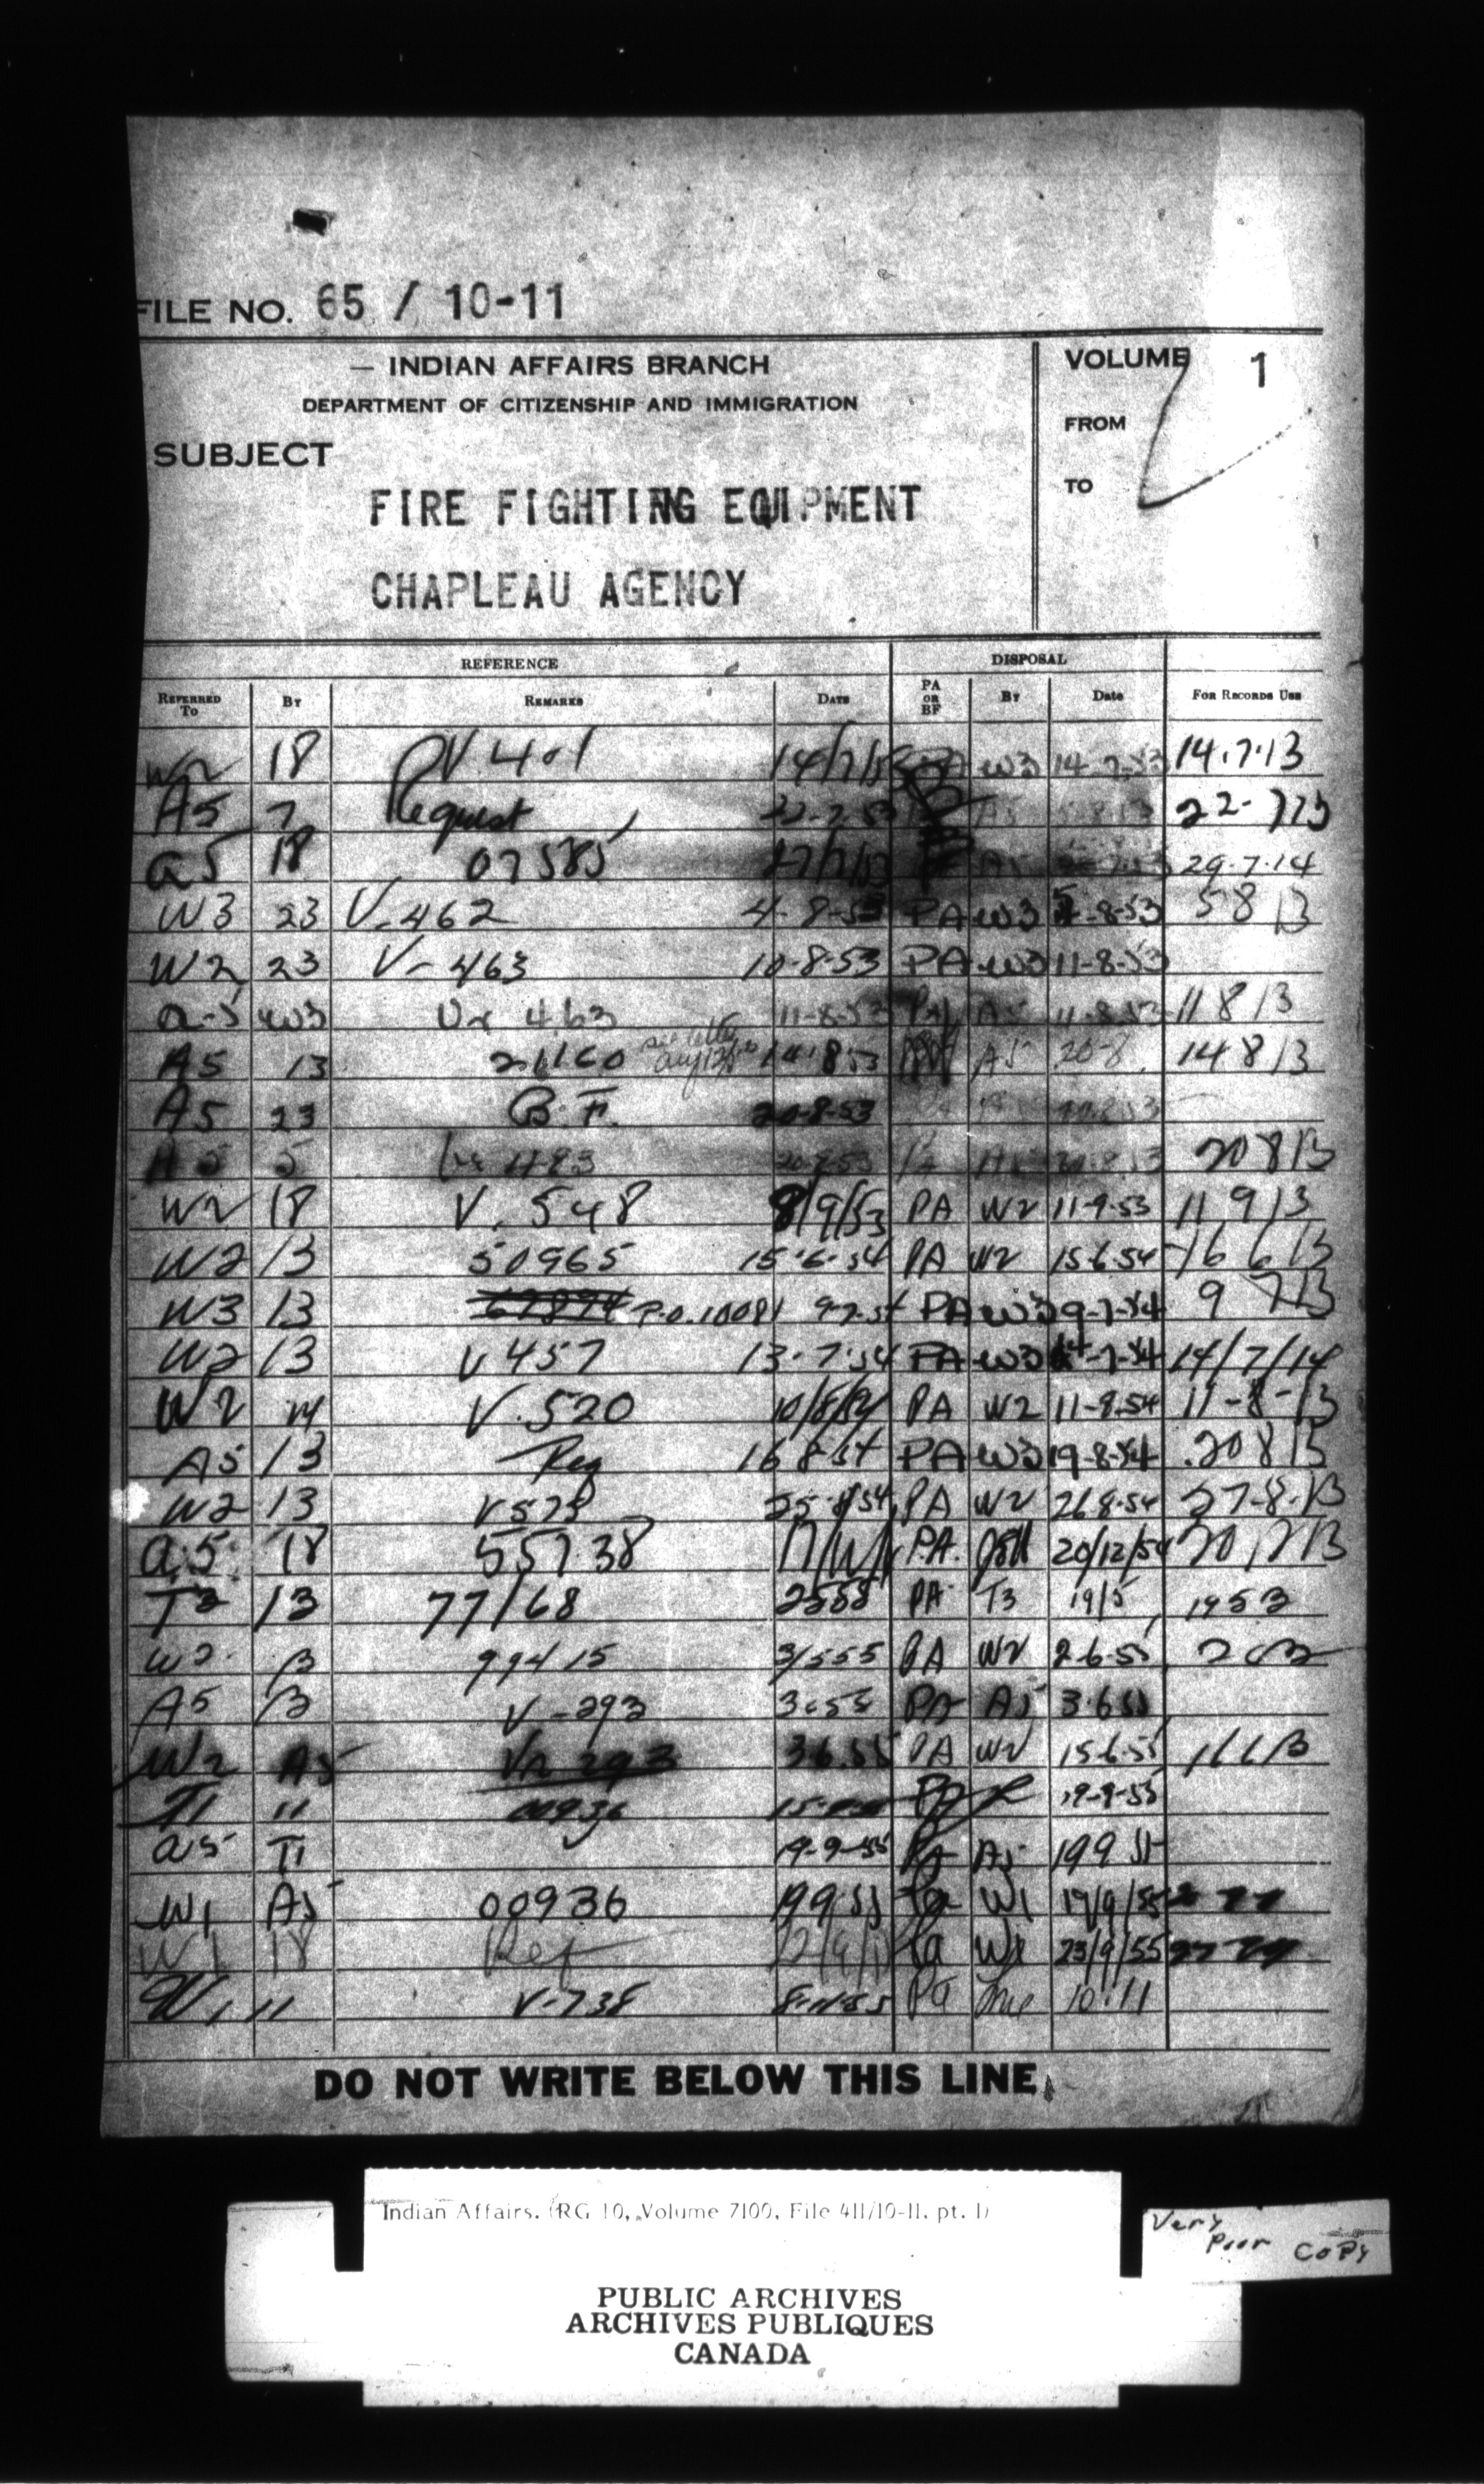 FILE NO. 65 / 10-11
INDIAN AFFAIRS BRANCH
DEPARTMENT OF CITIZENSHIP AND IMMIGRATION
VOLUME 1
FROM
TO
SUBJECT
FIRE FIGHTING EQUIPMENT
CHAPLEAU AGENCY
REFERENCE DISPOSAL
REFERRED TO BY REMARKS DATE PA OR BF BY Date FOR RECORDS USE
W2 18 V. 401 W3 14-7-53 14.7.13
A5 7 Request 22-7-53 A5 22-7 13
a5 18 07585 27/7/53 A5 29.7.14
W3 23 V-462 4-8-53 PA W3 5-8-53 5 8 13
W2 23 V-463 10-8-53 PA W3 11-8-53
a-5 W3 463 11-8-53 PA A5 11-8-53 11 8 13
A5 13 21160 see letter 14.8.53 A5 20-8 14 8 13
A5 23 B.F. 20-8-53
A5 5 483 20-8-53 20 8 13
W2 18 V. 548 8/9/53 PA W2 11-9-53 11 9 13
W2 13 50965 15.6.54 PA W2 15.6.54 16 6 13
W3 13 P.O. 10081 9-7-54 PA W3 9-7-54 9 7 13
W2 13 V457 13.7.54 PA W3 14-7-54 14/7/14
W2 14 V.520 10/8/54 PA W2 11-8-54 11-8-13
A5 13 Req 16 8 54 PA W3 19-8-54 20 8 13
W2 13 V575 25-8-54 PA W2 26.8.54 27-8-13
a.5 18 55738 PA. 20/12/54 20 12 13
T3 13 77168 PA T3 19/5 19 5 3
W2 13 99415 31 5 55 PA W2 2-6-55
A5 13 V-293 3 6 55 PA A5 3.6 55
W2 A5 293 3.6.55 PA W2 15.6.55 16 6 13
T1 11 00936 19-9-55
a5 T1 19-9-55 PA A5 19 9 55
W1 A5 00936 19 9 55 Pa W1 19/9/55
W1 18 Req Pa W1 23/9/55
W1 11 V-738 8-11-55 Pa 10.11
DO NOT WRITE BELOW THIS LINE
Indian Affairs. (RG 10, Volume 7100, File 411/10-11, pt. 1)
Very Poor Copy
PUBLIC ARCHIVES
ARCHIVES PUBLIQUES
CANADA